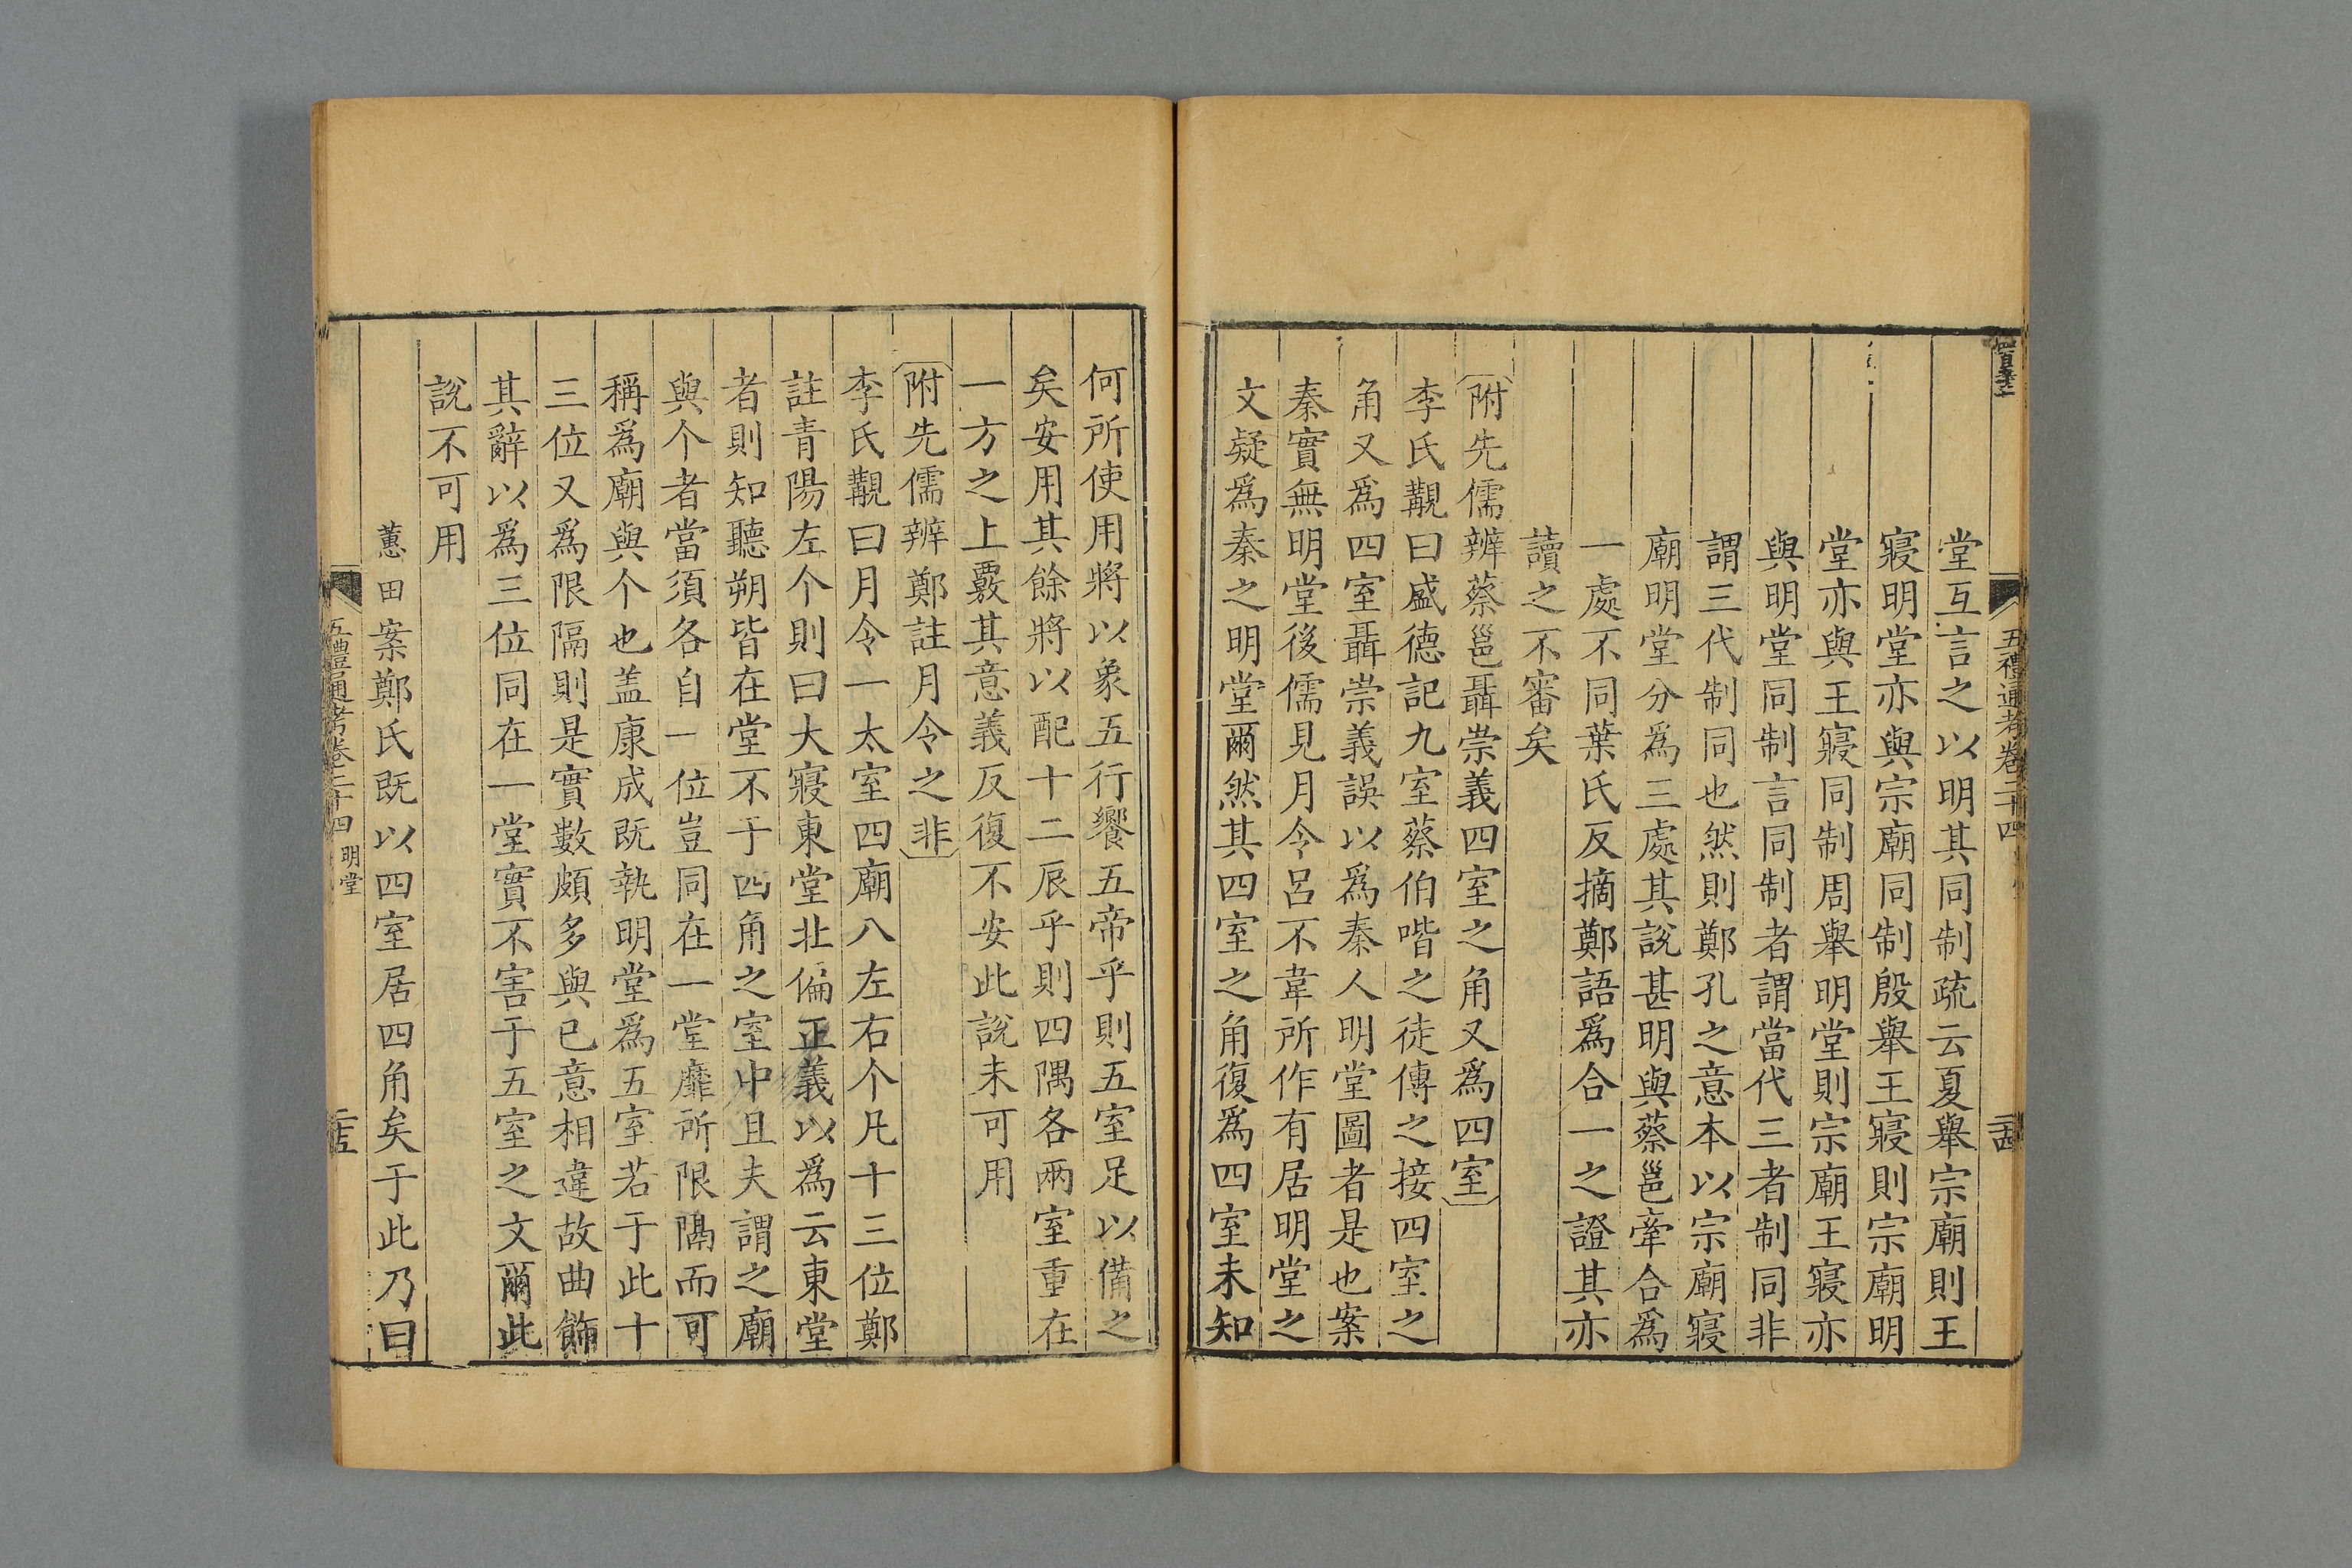 五禮通考卷二十四
堂互言之以明其同制疏云夏舉宗廟則王
寢明堂亦與宗廟同制殷舉王寢則宗廟明
堂亦與王寢同制周舉明堂則宗廟王寢亦
與明堂同制言同制者謂當代三者制同非
謂三代制同也然則鄭孔之意本以宗廟寢
廟明堂分爲三處其說甚明與蔡邕牽合爲
一處不同葉氏反摘鄭語爲合一之證其亦
讀之不審矣
附先儒辨蔡邕聶崇義四室之角又爲四室
李氏覯曰盛德記九室蔡伯喈之徒傳之接四室之
角又爲四室聶崇義誤以爲秦人明堂圖者是也案
秦實無明堂後儒見月令呂不韋所作有居明堂之
文疑爲秦之明堂爾然其四室之角復爲四室未知
何所使用將以象五行饗五帝乎則五室足以備之
矣安用其餘將以配十二辰乎則四隅各兩室重在
一方之上覈其意義反復不安此說未可用
附先儒辨鄭註月令之非
李氏覯曰月令一太室四廟八左右个凡十三位鄭
註青陽左个則曰大寢東堂北偏正義以爲云東堂
者則知聽朔皆在堂不于四角之室中且夫謂之廟
與个者當須各自一位豈同在一堂靡所限隔而可
稱爲廟與个也盖康成既執明堂爲五室若于此十
三位又爲限隔則是實數頗多與已意相違故曲飾
其辭以爲三位同在一堂實不害于五室之文爾此
說不可用
蕙田案鄭氏既以四室居四角矣于此乃曰
五禮通考卷二十四 明堂 二十五